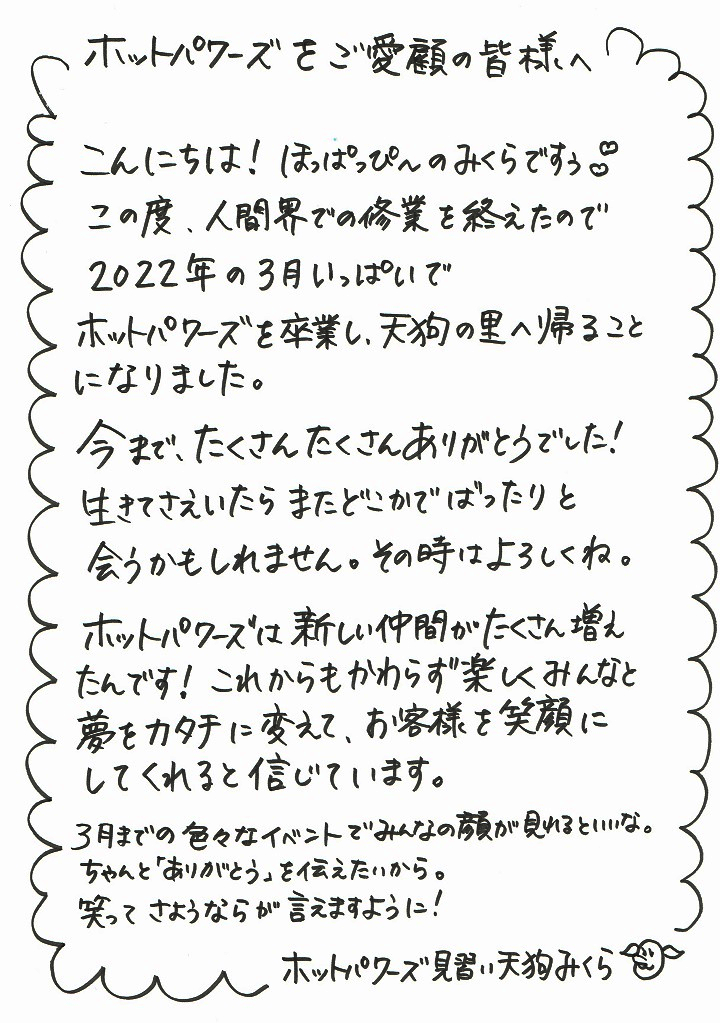 ホットパワーズをご愛顧の皆様へ
こんにちは！ほっぱっぴ〜のみくらですぅ
この度、人間界での修業を終えたので
2022年の3月いっぱいで
ホットパワーズを卒業し、天狗の里へ帰ること
になりました。
今まで、たくさんたくさんありがとうでした！
生きてさえいたらまたどこかでばったりと
会うかもしれません。その時はよろしくね。
ホットパワーズは新しい仲間がたくさん増え
たんです！これからもかわらず楽しくみんなと
夢をカタチに変えて、お客様を笑顔に
してくれると信じています。
3月までの色々なイベントでみんなの顔が見れるといいな。
ちゃんと「ありがとう」を伝えたいから。
笑ってさようならが言えますように！
ホットパワーズ見習い天狗みくら